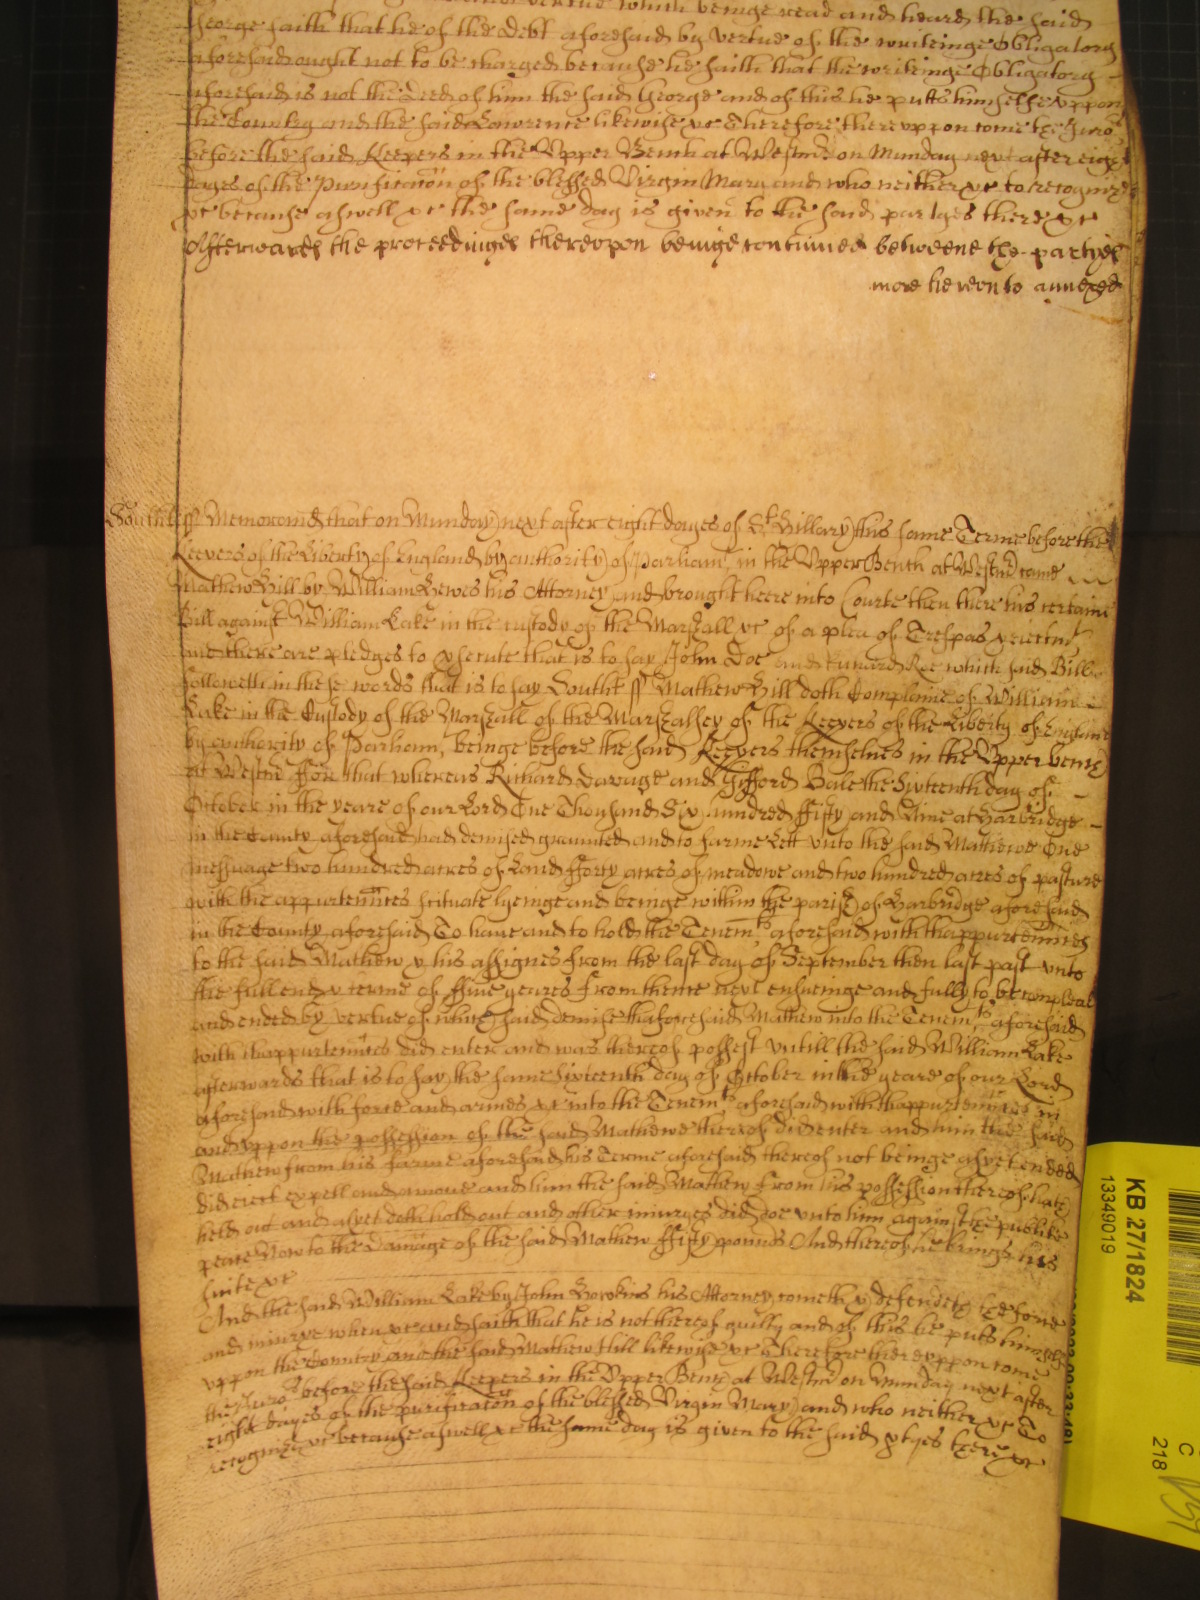 vertue which beinge read and heard the said
George saith that he of the debt aforesaid by vertue of the writeinge obligatory
aforesaid ought not to be charged because he saith that the writeinge obligatory
aforesaid is not the deed of him the said George and of this he putts himselfe vppon
the Country and the said Lawrence likewise &c Therefore therevppon come the Juro
before the said Keepers in the Vpper Bench at Westmr on Munday next after eight
dayes of the Purificacon of the blessed Virgin Mary and who neither &c to recognize
&c because aswell &c the same day is given to the said partyes there &c
Afterwards the proceedinges therevpon beinge continued betweene the partyes
more herevnto annexed
Southt ss Memorand that on Munday next after eight dayes of St Hillary this same Terme before the
Keepers of the Liberty of England by authority of Parliamt in the Vpper Bench at Westmr came
Mathew Hill by William Hewes his Attorney and brought heere into Courte then there his certaine
Bill against William Lake in the custody of the Marshall &c of a plea of Trespas & eiectmt
and there are pledges to prosecute that is to say John Doe and Richard Roe which said Bill
followeth in these words that is to say Southt ss Mathew Hill doth Complaine of William
Lake in the Custody of the Marshall of the Marshalsey of the Keepers of the Liberty of England
by authority of Parliam, beinge before the said Keepers themselues in the Vpper bench
at Westmr ffor that whereas Richard Savage and Gifford Bale the Sixteenth day of
October in the yeare of our Lord One Thousand Six hundred ffifty and Nine at Harbridge
in the County aforesaid had demised graunted and to farme Lett vnto the said Mathewe One
messuage two hundred acres of Land fforty acres of meadowe and two hundred acres of pasture
with the appurtennces scituate lyeinge and beinge within the parish of Harbridge aforesaid
in the County aforesaid To haue and to hold the Tenemts aforesaid with thappurtennces
to the said Mathew & his assignes from the last day of September then last past vnto
the full end & terme of ffiue yeares from thence next ensueinge and fully to be compleat
and ended by vertue of which said demise thaforesaid Mathew into the Tenemts aforesaid
with thappurtennces did enter and was thereof possest vntill the said William Lake
afterwards that is to say the same Sixteenth day of October in the yeare of our Lord
aforesaid with force and armes &c into the Tenemts aforesaid with thappurtennces in
and vppon the possession of the said Mathewe thereof did enter and him the said
Mathew from his farme aforesaid his Terme aforesaid thereof not beinge as yet ended
did eiect expell and amoue and him the said Mathew from his possession thereof hath
held out and as yet doth hold out and other iniuryes did doe vnto him against the publike
peace Now to the Damage of the said Mathew ffifty pounds And thereof he brings his
suite &c
And the said William Lake by John Howkins his Attorney cometh & defendeth the force
and iniurye when &c and saith that he is not thereof guilty and of this he putts himselfe
vppon the Country and the said Mathew Hill likewise &c Therefore therevppon come
the Juro before the said Keepers in the Vpper Bench at Westmr on Munday next after
eight dayes of the purificacon of the blessed Virgin Mary and who neither &c To
recognize &c because aswell &c the same day is given to the said ptyes there &c
KB 27/1824
13349019
C
218